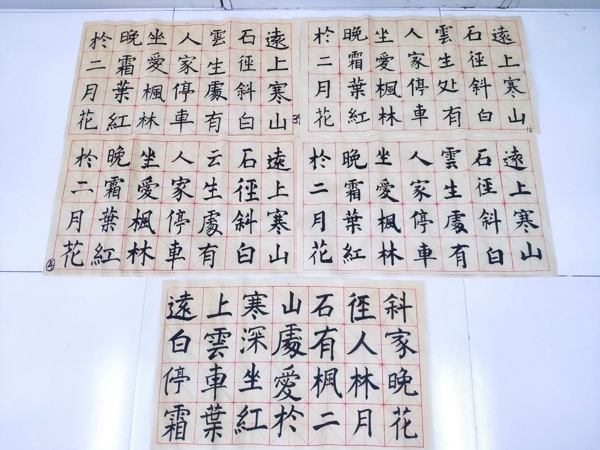 遠上寒山
石徑斜白
雲生處有
人家停車
坐愛楓林
晚霜葉紅
於二月花
遠上寒山
石徑斜白
雲生处有
人家停車
坐愛楓林
晚霜葉紅
於二月花
16
遠上寒山
石徑斜白
云生處有
人家停車
坐愛楓林
晚霜葉紅
於二月花
遠上寒山
石徑斜白
雲生處有
人家停車
坐愛楓林
晚霜葉紅
於二月花
遠上寒山石徑斜
白雲深處有人家
停車坐愛楓林晚
霜葉紅於二月花